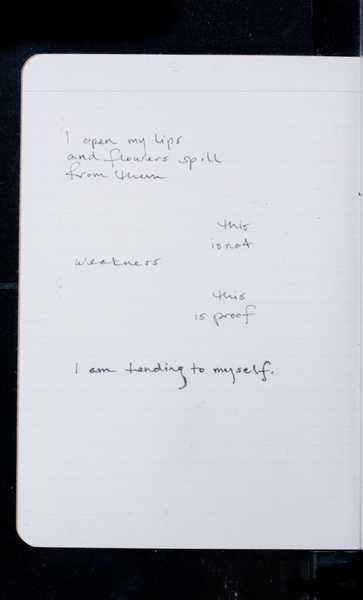 I open my lips
and flowers spill
from them
this
is not
weakness
this
is proof
I am tending to myself.